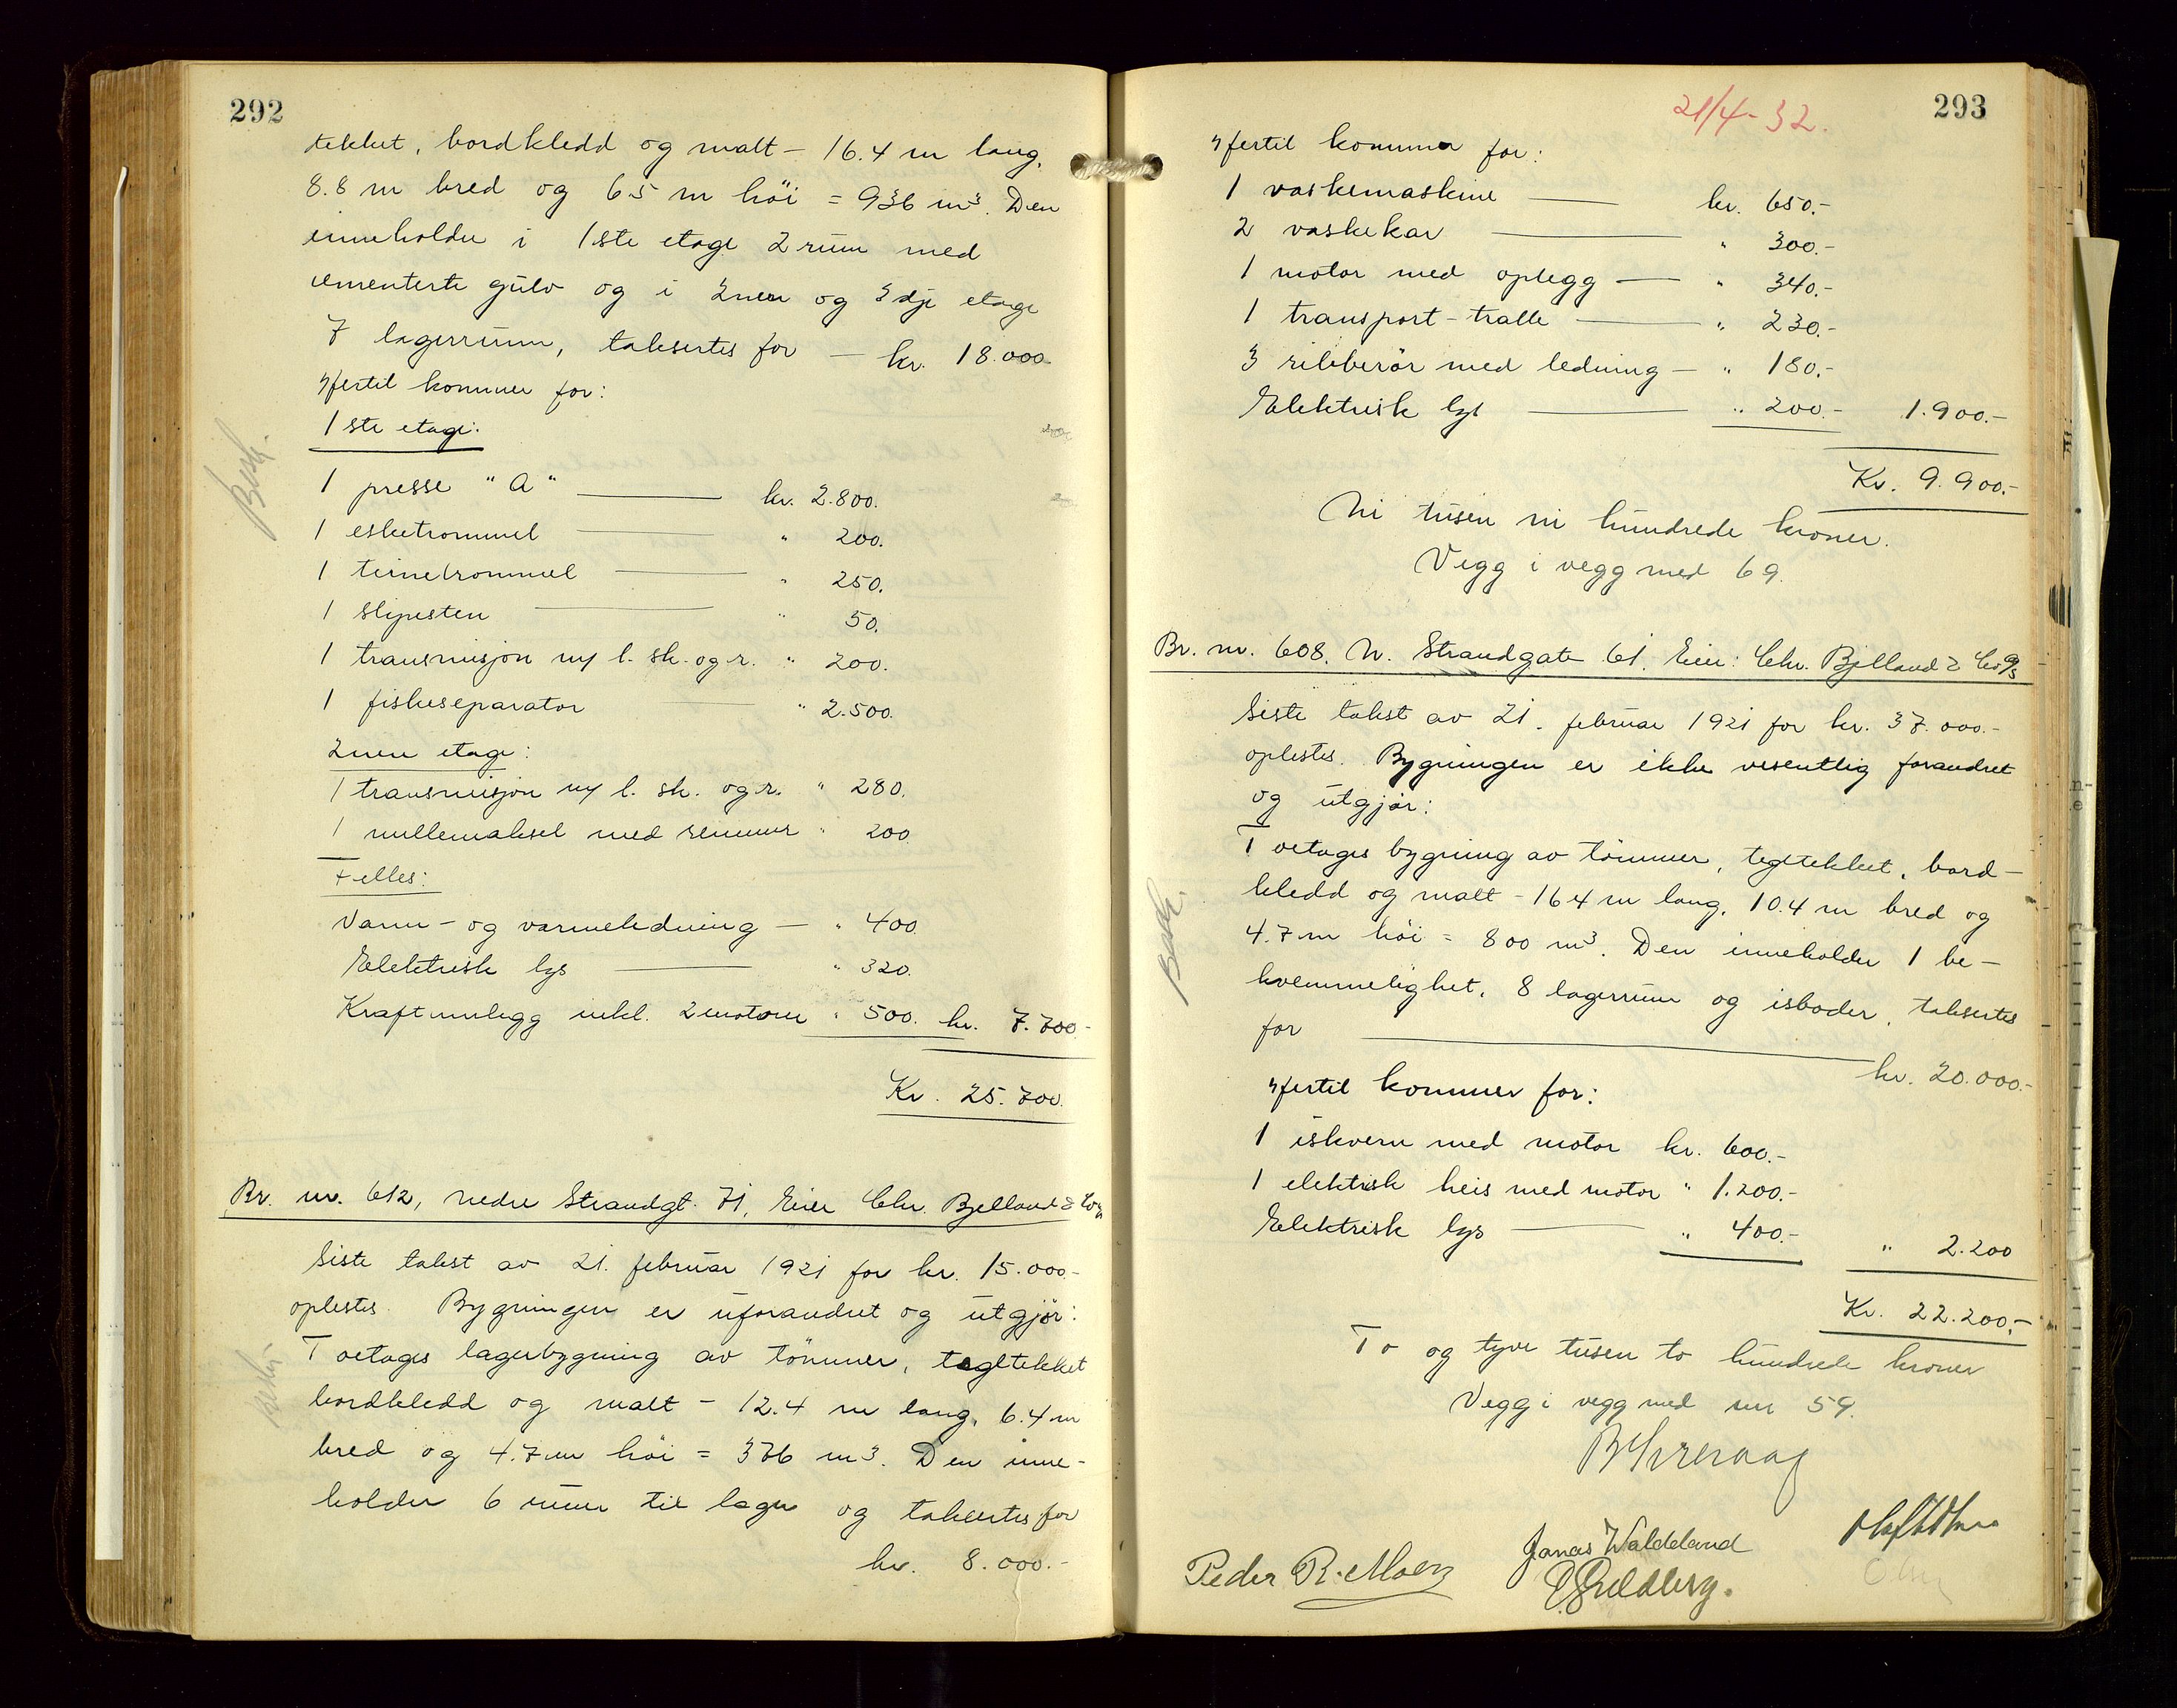 292
tekket, bordkledd og malt - 16.4 m lang,
8.8 m bred og 6.5 m höi = 936 m³. Den
inneholder i 1ste etage 2 rum med
cementerte gulv og i 2nen og 3dje etage
7 lagerrum, takseres for - kr. 18.000.
Hertil kommer for:
1ste etage:
1 presse "A" kr. 2.800.
1 esketrommel " 200.
1 ternetrommel " 250.
1 slipesten " 50.
1 transmisjon m/ l. sk. og r. " 200.
1 fiskeseparator " 2.500.
2nen etage:
1 transmisjon m/ l. sk. og r. " 280.
1 mellemaksel med remmer " 200.
Felles:
Vann- og varmeledning - " 400.
Elektrisk lys " 320.
Kraftanlegg inkl. 2 motorer " 500. kr. 7.700.-
Kr. 25.700.
Br. nr. 612, nedre Strandgt. 71, Eier Chr. Bjelland & Co A/S
Siste takst av 21. februar 1921 for kr. 15.000.-
oplestes. Bygningen er uforandret og utgjör:
Toetages lagerbygning av tömmer, tegltekket
bordkledd og malt - 12.4 m lang, 6.4 m
bred og 4.7 m höi = 376 m³. Den inne-
holder 6 rum til lager og takseres for
kr. 8.000.-
21/4-32.
293
Hertil kommer for:
1 vaskemaskine kr. 650.-
2 vaskekar " 300.-
1 motor med oplegg - " 340.-
1 transport-tralle " 230.-
3 ribberör med ledning - " 180.-
Elektrisk lys " 200.- 1.900.-
Kr. 9.900.-
Ni tusen ni hundrede kroner.
Vegg i vegg med 69.
Br. nr. 608. N. Strandgate 61. Eier: Chr. Bjelland & Co A/S
Siste takst av 21. februar 1921 for kr. 37.000.-
oplestes. Bygningen er ikke vesentlig forandret
og utgjör:
Toetages bygning av tömmer, tegltekket, bord-
kledd og malt - 16.4 m lang, 10.4 m bred og
4.7 m höi = 800 m³. Den inneholder 1 be-
kvemmelighet, 8 lagerrum og isboder, takseres
for kr. 20.000.-
Hertil kommer for:
1 iskvern med motor kr. 600.-
1 elektrisk heis med motor " 1.200.-
Elektrisk lys " 400.- " 2.200
Kr. 22.200.-
To og tyve tusen to hundrede kroner
Vegg i vegg med nr 59.
Peder R. Moen
Jonas Waldeland